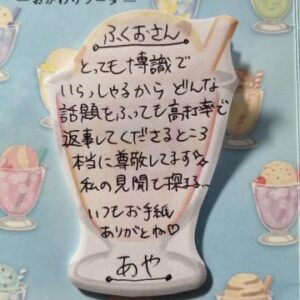 おかわりソーダ
ふくおさん
とっても博識で
いらっしゃるから どんな
話題をふっても高確率で
返事してくださるところ
本当に尊敬してます
私の見聞も深まる…
いつもお手紙
ありがとね♡
あや